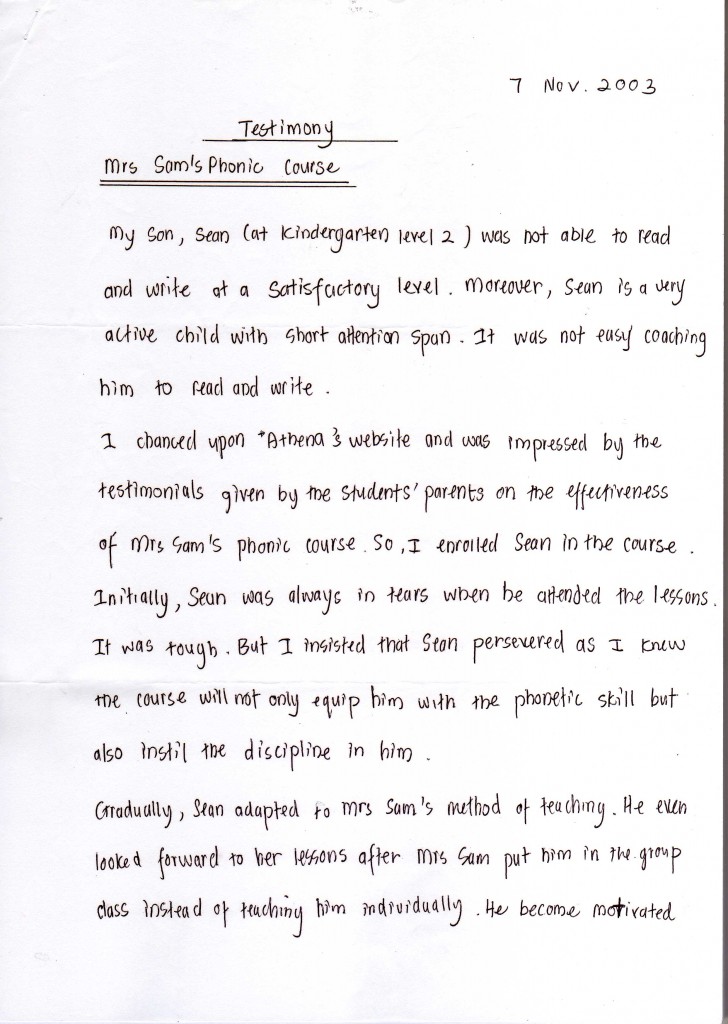 7 Nov. 2003
Testimony
Mrs Sam's Phonic Course
My son, Sean (at Kindergarten level 2) was not able to read
and write at a satisfactory level. Moreover, Sean is a very
active child with short attention span. It was not easy coaching
him to read and write.
I chanced upon "Athena's website and was impressed by the
testimonials given by the students' parents on the effectiveness
of Mrs Sam's phonic course. So, I enrolled Sean in the course.
Initially, Sean was always in tears when he attended the lessons.
It was tough. But I insisted that Sean persevered as I knew
the course will not only equip him with the phonetic skill but
also instil the discipline in him.
Gradually, Sean adapted to Mrs Sam's method of teaching. He even
looked forward to her lessons after Mrs Sam put him in the group
class instead of teaching him individually. He become motivated